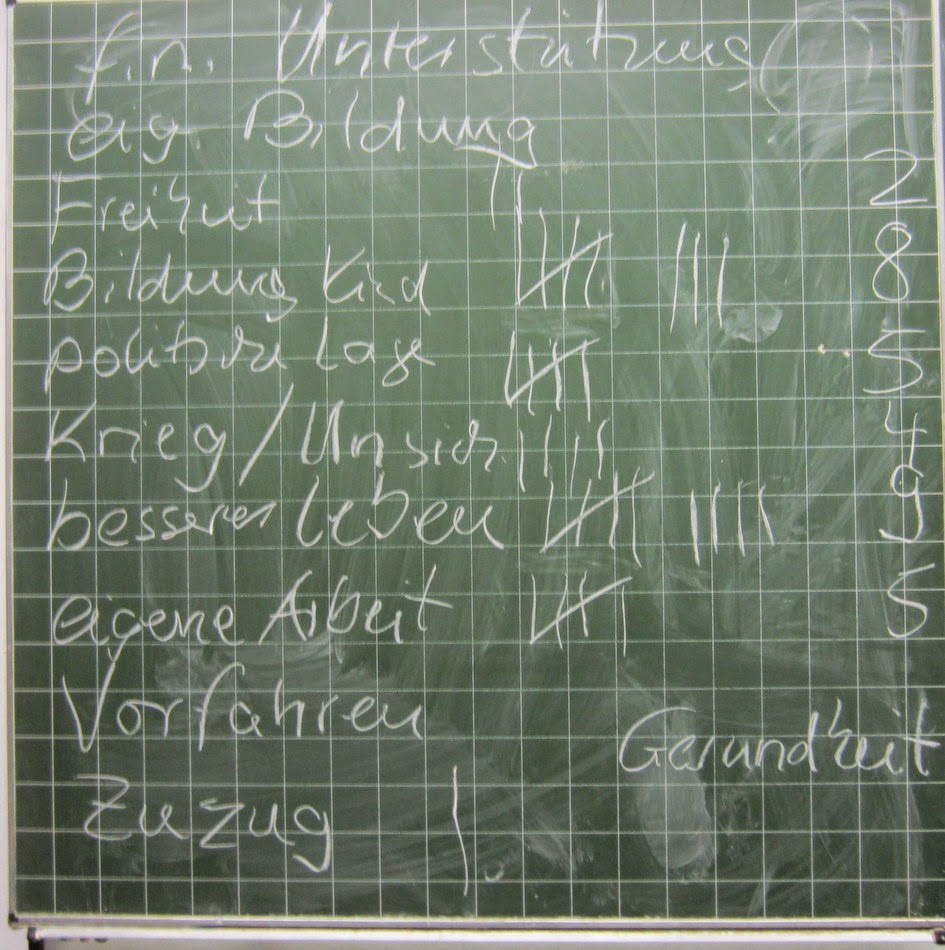 fin. Unterstützung
eig. Bildung
Freiheit || 2
Bildung Kind |||| ||| 8
politische Lage |||| 5
Krieg/Unsich. |||| 4
besseres Leben |||| |||| 9
eigene Arbeit |||| 5
Vorfahren
Gesundheit
Zuzug |